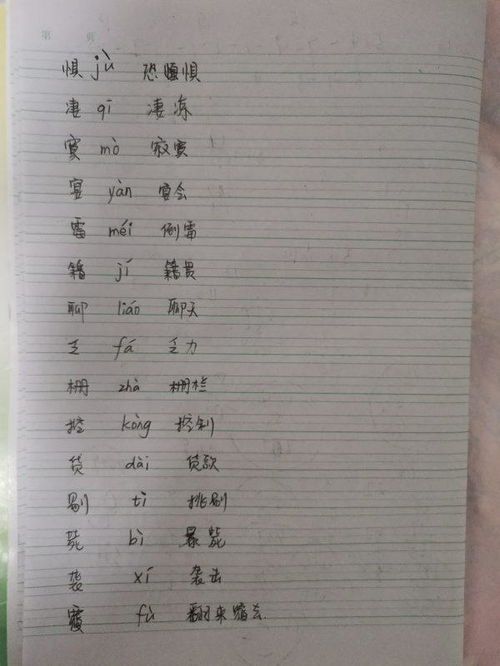 第 页
惧 jù 恐惧
凄 qī 凄冻
寞 mò 寂寞
宴 yàn 宴会
霉 méi 倒霉
籍 jí 籍贯
聊 liáo 聊天
乏 fá 乏力
栅 zhà 栅栏
控 kòng 控制
贷 dài 贷款
剔 tì 挑剔
毙 bì 暴毙
袭 xí 袭击
覆 fù 翻来覆去